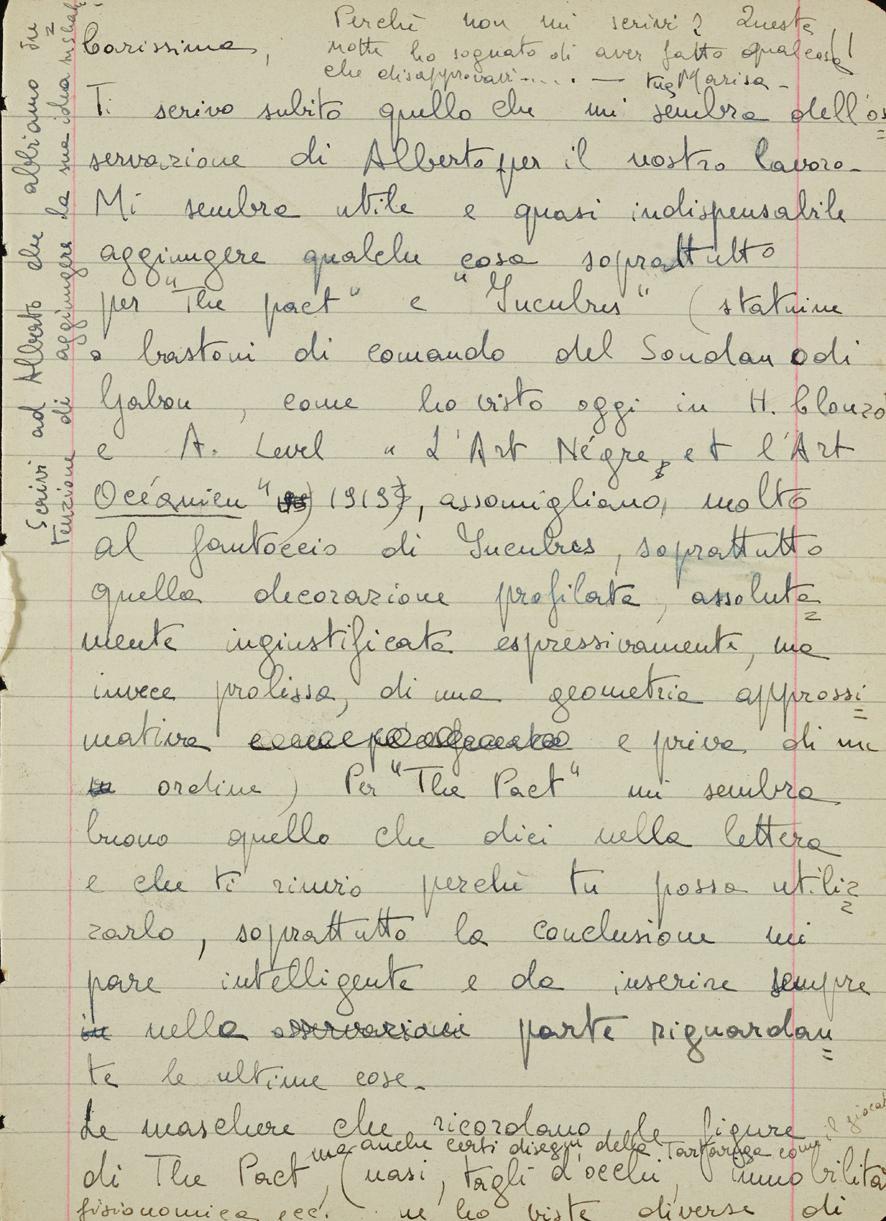 Perchè non mi scrivi? Questa
notte ho sognato di aver fatto qualcosa
che disapprovavi..... — tua Marisa -
Carissima,
Ti scrivo subito quello che mi sembra dell'os
servazione di Alberto per il nostro lavoro.
Mi sembra utile e quasi indispensabile
aggiungere qualche cosa soprattutto
per "The pact" e "Incubres" (statuine
o bastoni di comando del Soudan o di
Gabon, come ho visto oggi in H. Clouzo
e A. Level "L'Art Négre et l'Art
Océanien" 1919), assomigliano molto
al fantoccio di Incubres, soprattutto
quella decorazione profilata, assoluta
mente ingiustificata espressivamente, ma
invece prolissa, di una geometria approssi
mativa e priva di un
ordine) Per "The Pact" mi sembra
buono quello che dici nella lettera
e che ti rinvio perchè tu possa utiliz
zarlo, soprattutto la conclusione mi
pare intelligente e da inserire sempre
nella parte riguardan
te le ultime cose.
Le maschere che ricordano le figure
ma anche certi disegni della Tartaruga come il
di The Pact (nasi, tagli d'occhi, immobilità
fisionomica ecc. ne ho viste diverse di
Scrivi ad Alberto che abbiamo in
tenzione di aggiungere la sua idea